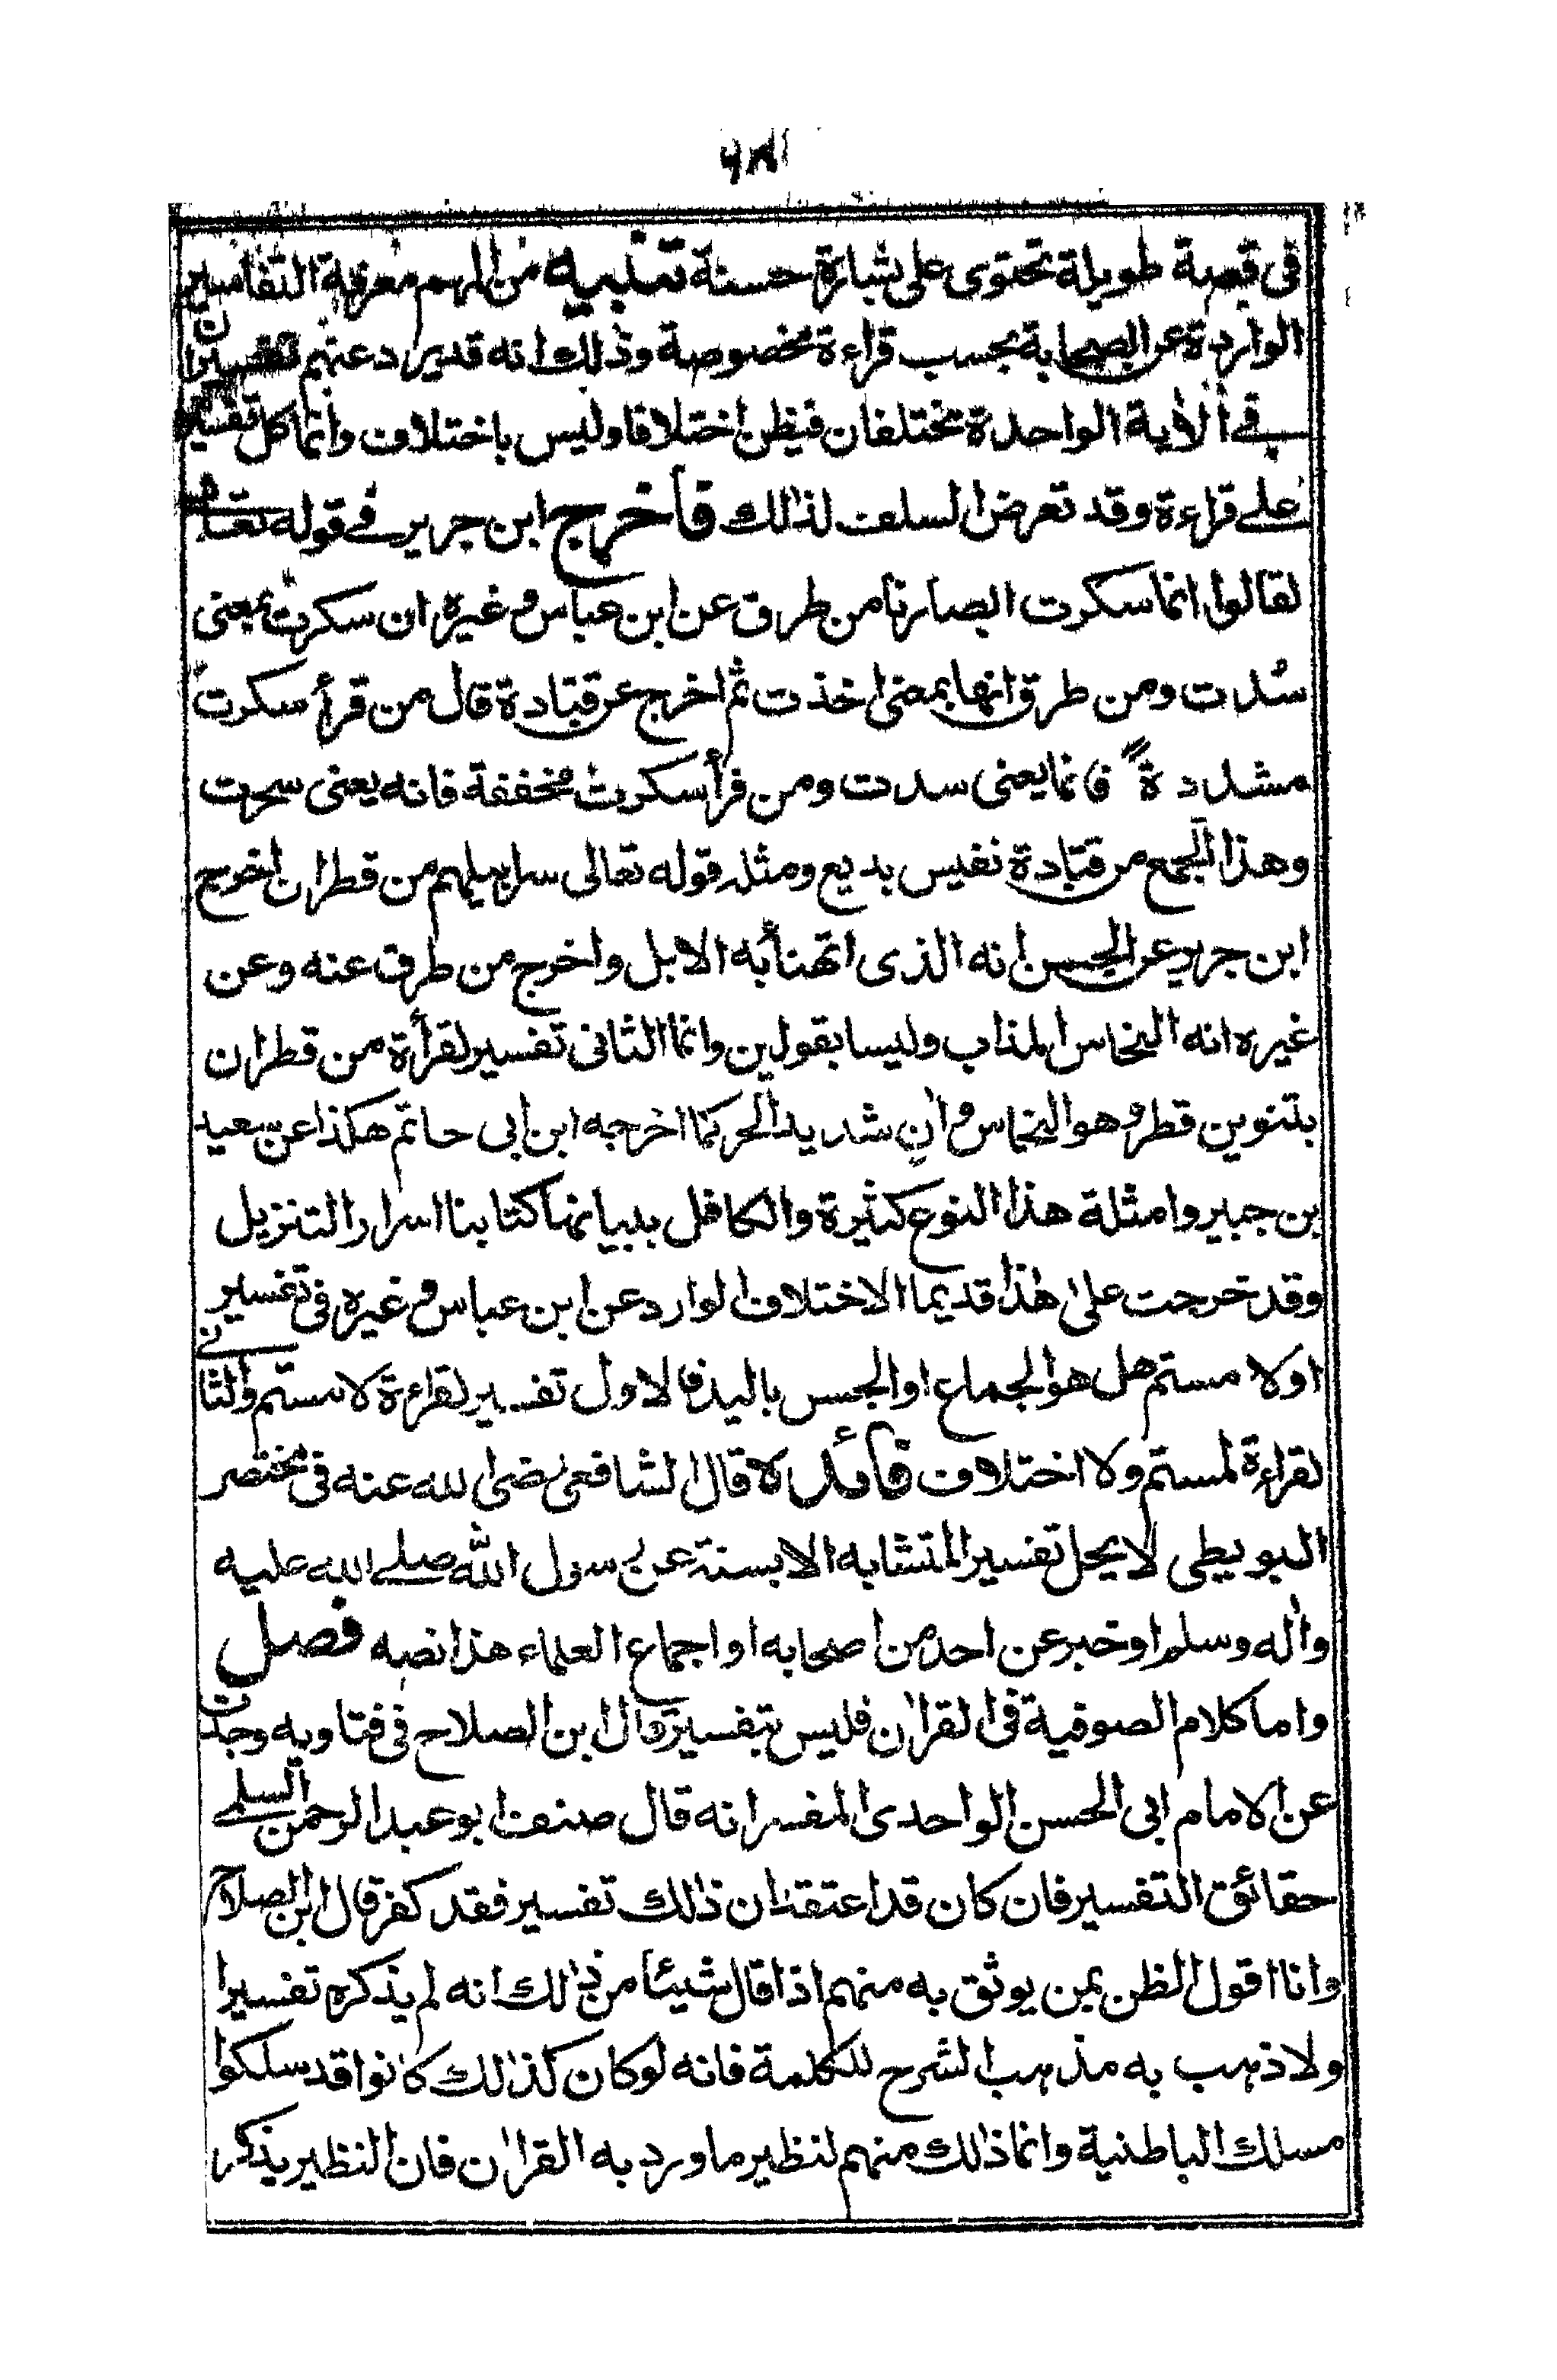 في قصة طويلة تحتوى على بشارة حسنة تنبيه من المهم معرفة التفاسير
الواردة عن الصحابة بحسب قراءة مخصوصة وذلك انه قد يرد عنهم تفسيران
في الاية الواحدة مختلفان فيظن اختلافا وليس باختلاف وانما كل تفسير
على قراءة وقد تعرض السلف لذلك فاخرج ابن جرير في قوله تعالى
لقالوا انما سكرت ابصارنا من طرق عن ابن عباس وغيره ان سكرت بمعنى
سُدت ومن طرق انها بمعنى اخذت ثم اخرج عن قتادة قال من قرأ سكرت
مشددةً فانما يعنى سدت ومن قرأ سكرت مخففة فانه يعنى سحرت
وهذا الجمع من قتادة نفيس بديع ومثله قوله تعالى سرابيلهم من قطران اخرج
ابن جرير عن الحسن انه الذى تهنأ به الابل واخرج من طرق عنه وعن
غيره انه النحاس المذاب وليسا بقولين وانما الثانى تفسير لقرأة من قطران
بتنوين قطر وهو النحاس وان شديد الحر كما اخرجه ابن ابى حاتم هكذا عن سعيد
بن جبير وامثلة هذا النوع كثيرة والكافل ببيانها كتابنا اسرار التنزيل
وقد خرجت على هذا قديما الاختلاف الوارد عن ابن عباس وغيره فى تفسير
اولامستم هل هو الجماع او الجس باليد فالاول تفسير لقراءة لامستم والثانى
لقراءة لمستم ولا اختلاف فائدة قال الشافعى رضى الله عنه فى مختصر
البويطى لا يحل تفسير المتشابه الا بسنة عن رسول الله صلى الله عليه
واله وسلم او خبر عن احد من اصحابه او اجماع العلماء هذا نصه فصل
واما كلام الصوفية فى القران فليس بتفسير قال ابن الصلاح فى فتاويه وجدت
عن الامام ابى الحسن الواحدى المفسر انه قال صنف ابو عبد الرحمن السلمى
حقائق التفسير فان كان قد اعتقد ان ذلك تفسير فقد كفر قال ابن الصلاح
وانا اقول الظن بمن يوثق به منهم اذا قال شيئا من ذلك انه لم يذكره تفسيرا
ولا ذهب به مذهب الشرح للكلمة فانه لو كان كذلك كانوا قد سلكوا
مسلك الباطنية وانما ذلك منهم لنظير ما ورد به القران فان النظير يذكر